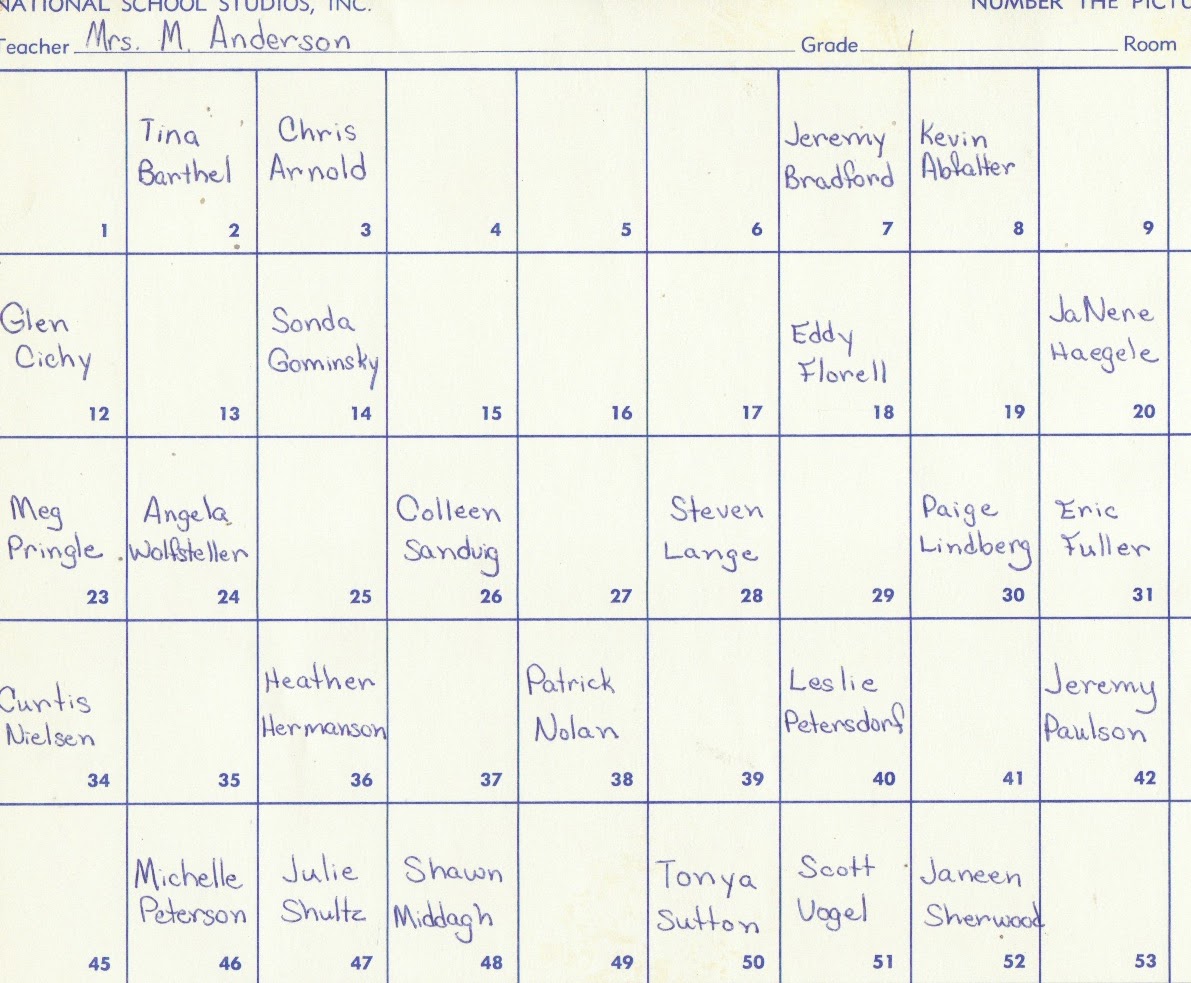 NATIONAL SCHOOL STUDIOS, INC. NUMBER THE PICTU
Teacher Mrs. M. Anderson Grade 1 Room
Tina Chris Jeremy Kevin
Barthel Arnold Bradford Abfalter
1 2 3 4 5 6 7 8 9
Glen Sonda Eddy JaNene
Cichy Gominsky Florell Haegele
12 13 14 15 16 17 18 19 20
Meg Angela Colleen Steven Paige Eric
Pringle Wolfsteller Sandvig Lange Lindberg Fuller
23 24 25 26 27 28 29 30 31
Curtis Heather Patrick Leslie Jeremy
Nielsen Hermanson Nolan Petersdorf Paulson
34 35 36 37 38 39 40 41 42
Michelle Julie Shawn Tonya Scott Janeen
Peterson Shultz Middagh Sutton Vogel Sherwood
45 46 47 48 49 50 51 52 53